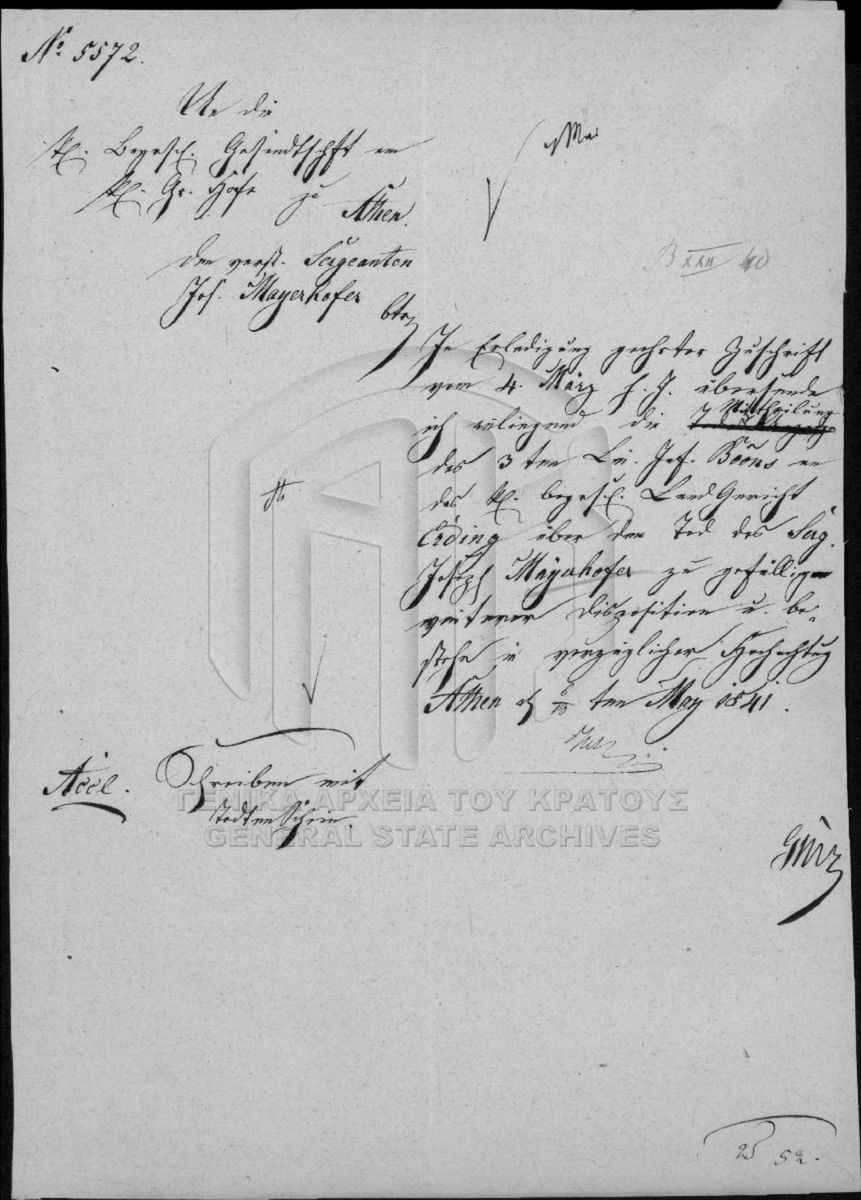 No. 5572.
An die
kl. Bayrsch. Gesandtschft am
kl. Gr. Hofe zu
Athen.
den verst. Sergeanten
Jos. Mayerhofer
btr
B XXII 40
In Erledigung geehrter Zuschrift
vom 4. März h. J. übersende
ich anliegend die Mittheilung
des 3ten Lin. Inf. Baons an
das kl. bayrsch. Land Gericht
Erding über den Tod des Serg.
Joseph Mayerhofer zu gefälliger
weiterer Disposition u. be-
stehe in vorzüglicher Hochachtung
Athen d 6/18 ten May 1841.
Accl. Schreiben mit
Todtenschein.
ΓΕΝΙΚΑ ΑΡΧΕΙΑ ΤΟΥ ΚΡΑΤΟΥΣ
GENERAL STATE ARCHIVES
52.